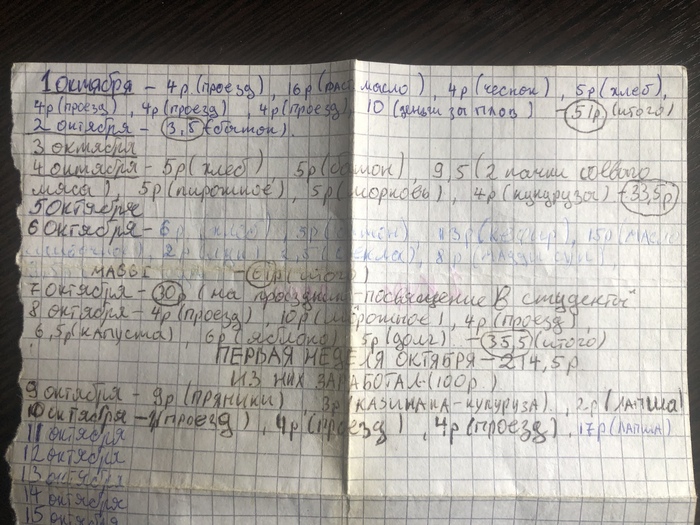 1 октября – 4р (проезд), 16р (раст масло), 4р (чеснок), 5р (хлеб),
4р (проезд), 4р (проезд), 4р (проезд), 10 (деньги за плов) – 51р (итого)
2 октября – 3,5 (батон).
3 октября
4 октября – 5р (хлеб), 5р (батон), 9,5 (2 пачки соевого
мясы), 5р (пирожное), 5р (морковь), 4р (кукуруза) – 33,5р
5 октября
6 октября – 6р 3р 13р (кефир), 15р (масло
2р 2,5 8р
– 61р (итого)
7 октября – 30р (на праздник "посвящение в студенты"
8 октября – 4р (проезд), 10р (мороженое), 4р (проезд),
6,5р (капуста), 6р (яблоко), 5р (долг). – 35,5 (итого)
ПЕРВАЯ НЕДЕЛЯ ОКТЯБРЯ – 214,5р
ИЗ НИХ ЗАРАБОТАЛ (100р)
9 октября – 9р (пряники), 3р (казинака-кукуруза), 2р (лапша)
10 октября – 4 (проезд), 4р (проезд), 4р (проезд), 17р (лапша)
11 октября
12 октября
13 октября
14 октября
15 октября